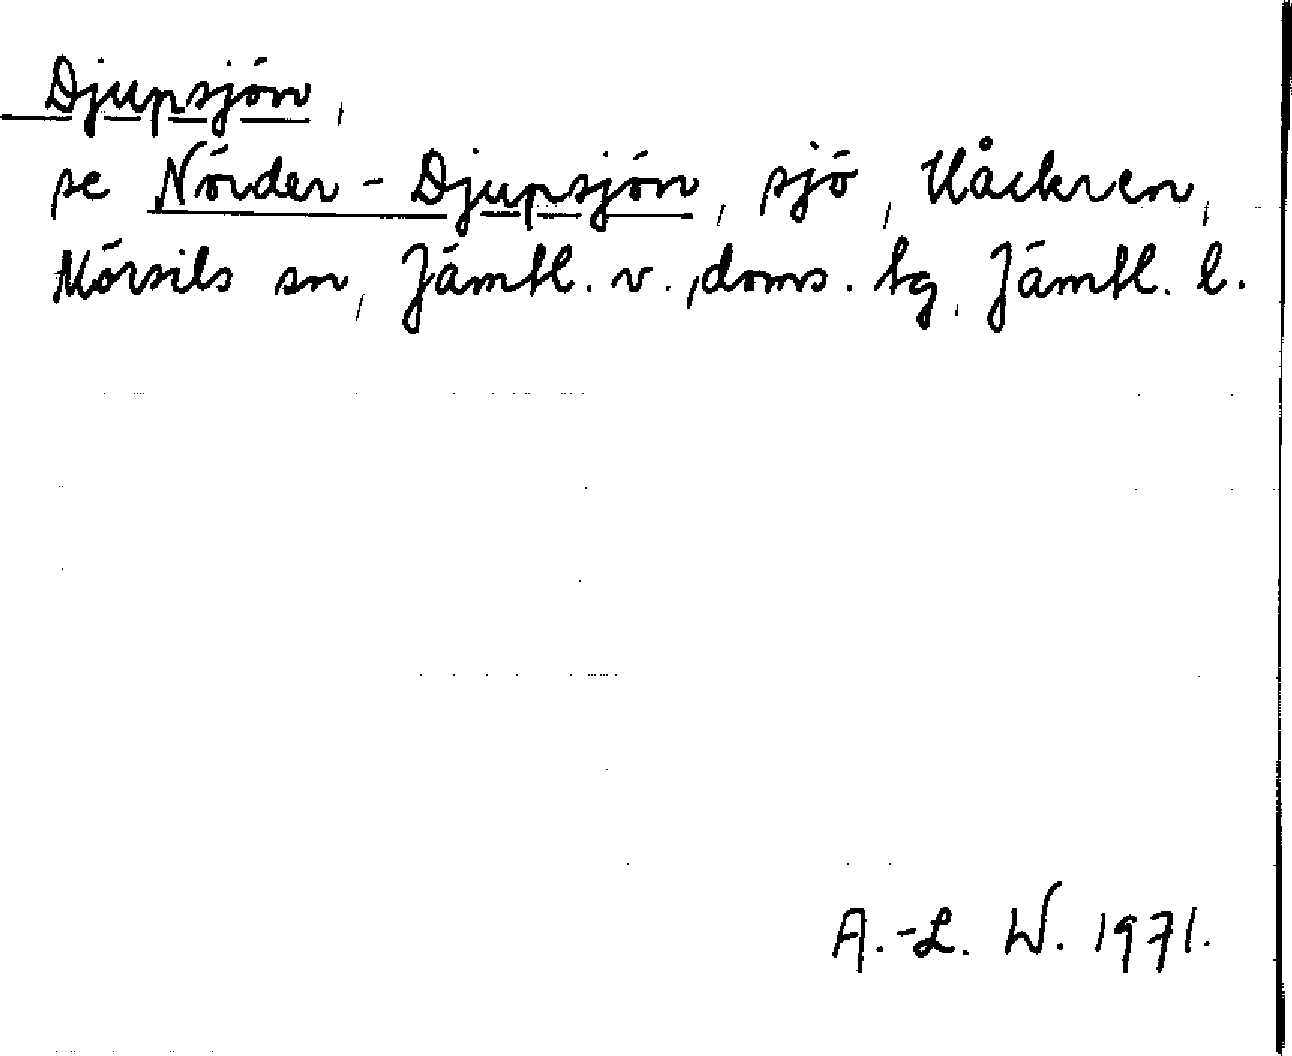 Djupsjön,
se Nörder-Djupsjön, sjö, Håckren,
Mörsils sn, Jämtl. v. doms. tg, Jämtl. l.
A.-L. W. 1971.